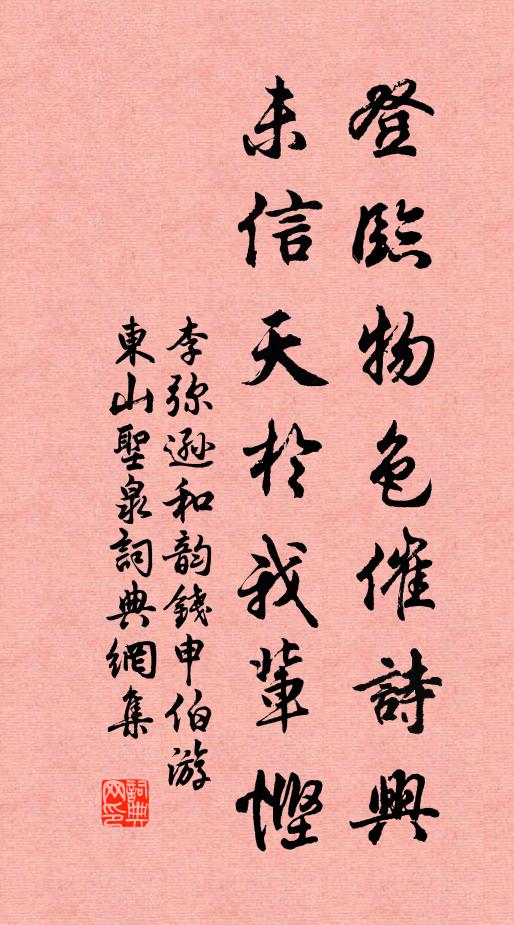 登臨物色催詩興
未信天於我輩慳
李弥遜和韵錢申伯游
東山聖泉詞典網集
詞典
网印